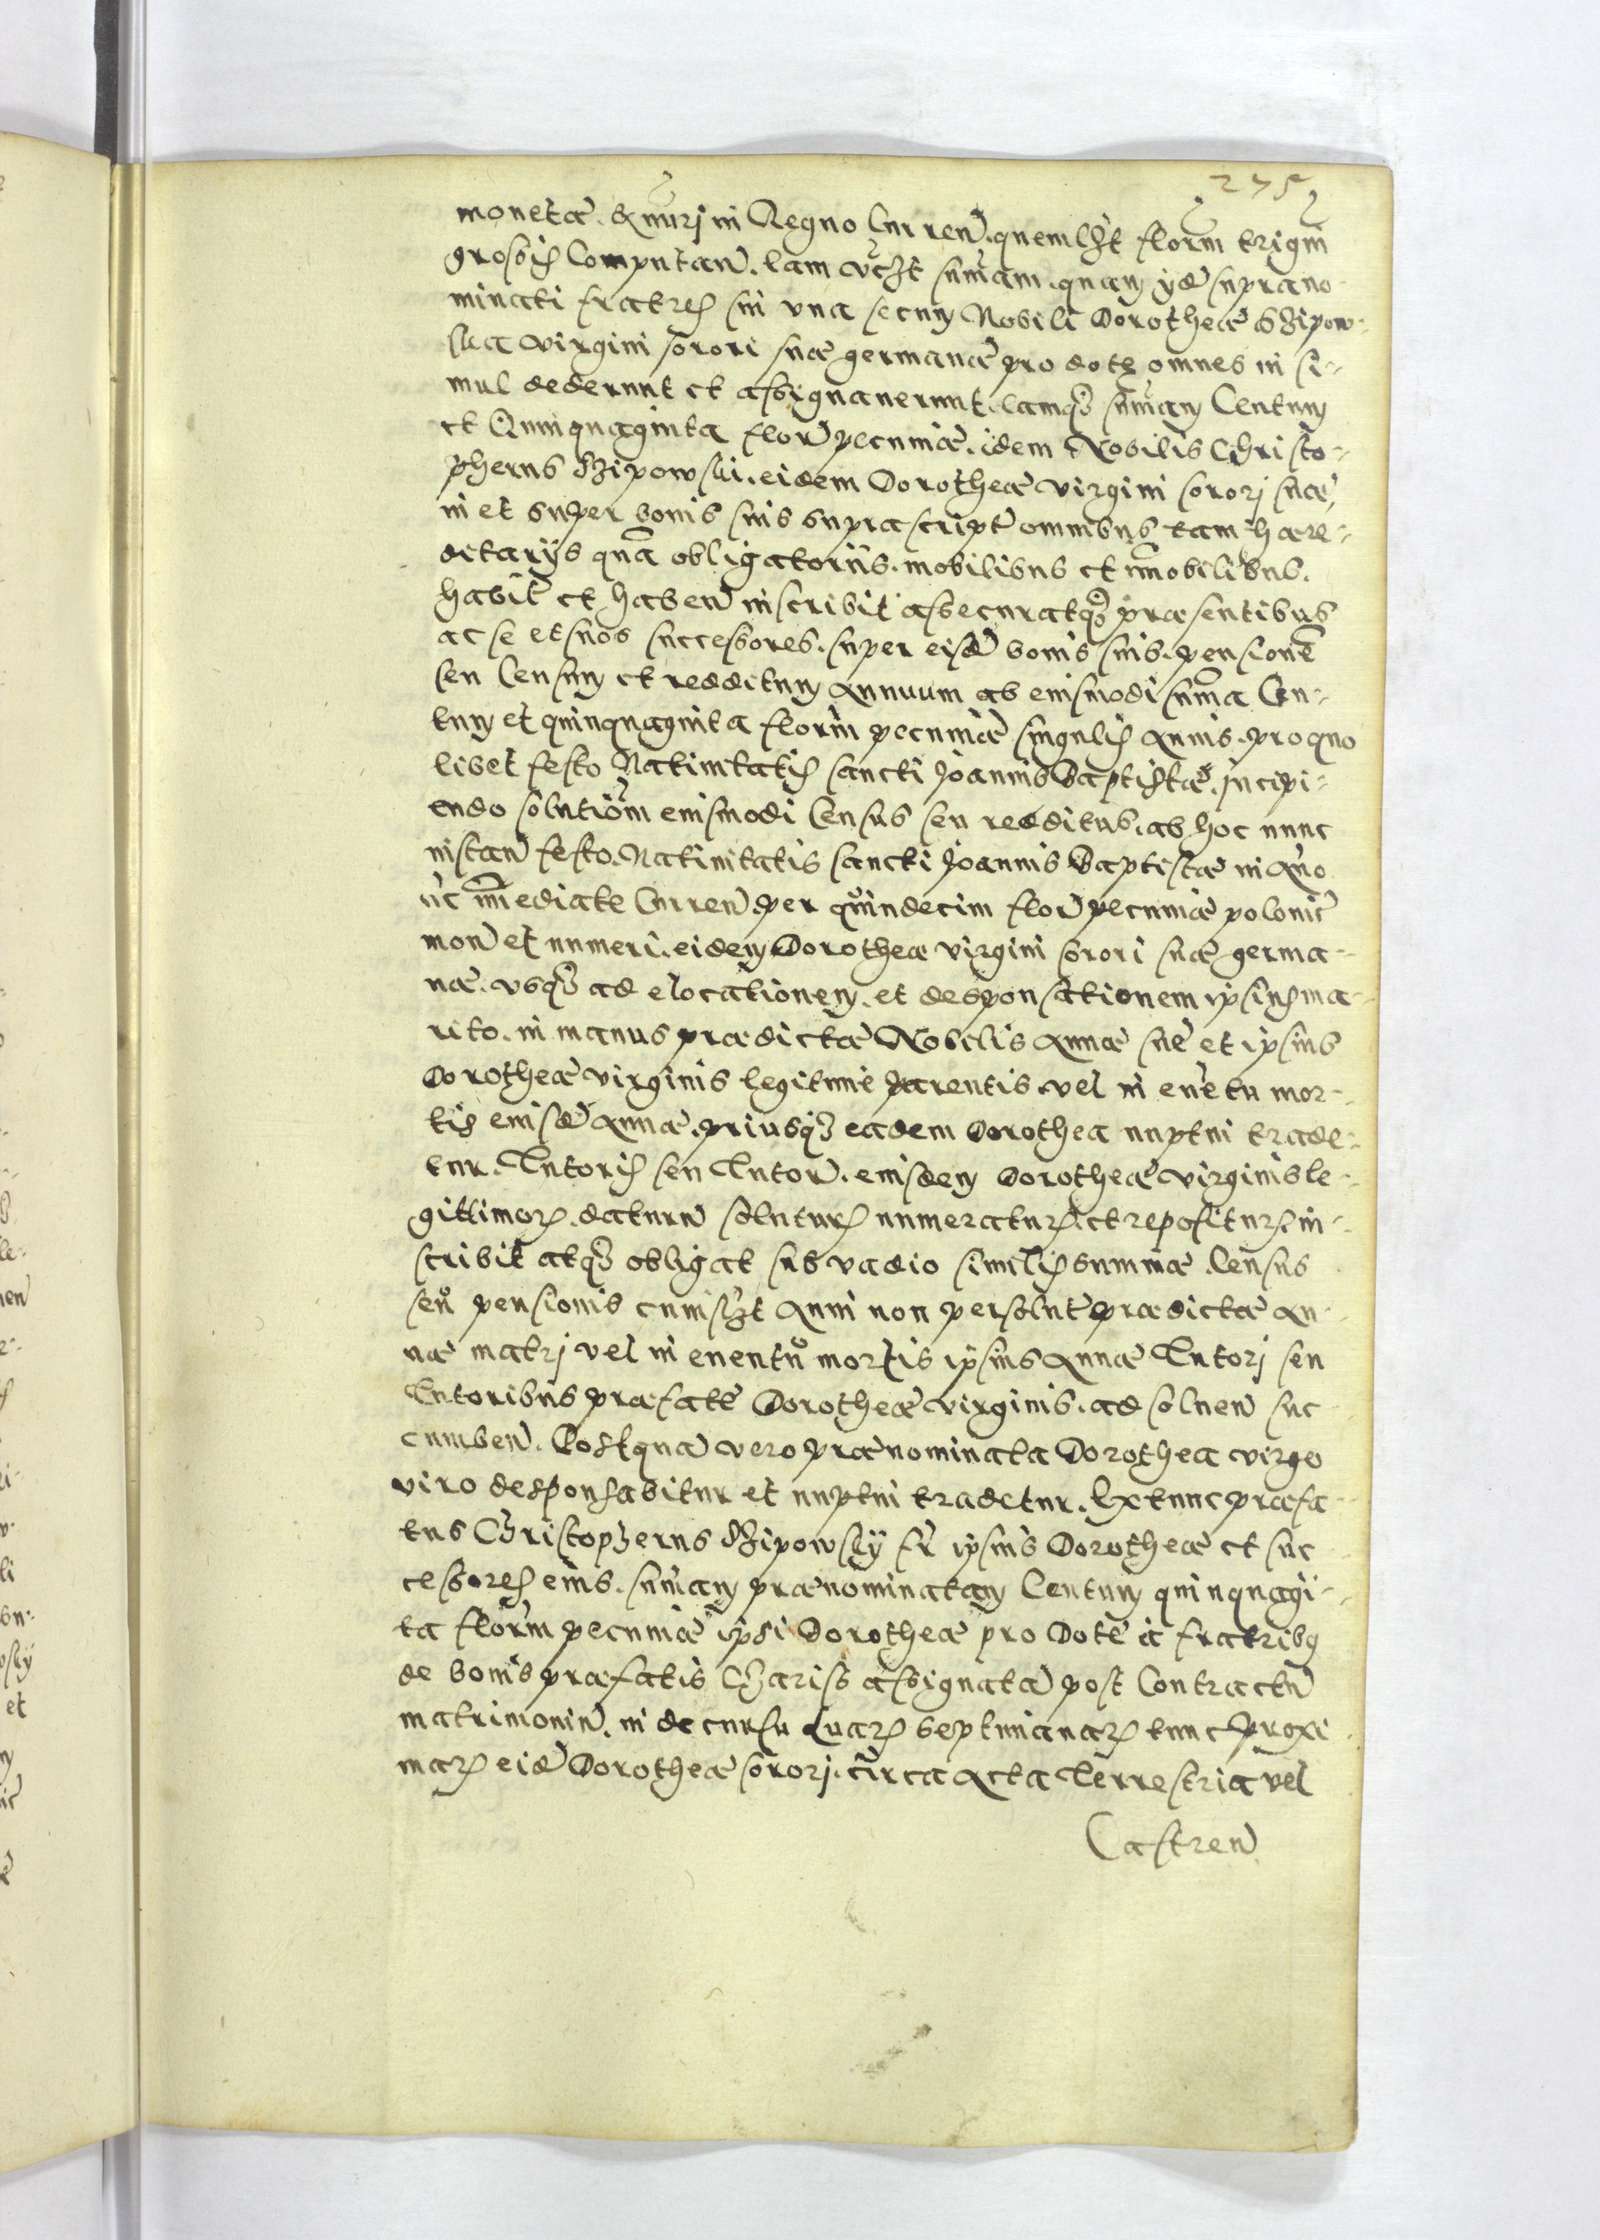 275
monetæ & nũrj in Regno Curreñ. quemlзt florm trigin
grossis Computañ. eam vczt sum̃am. quam ijd supranominati
minati fratres sui vna secum Nobili Dorotheæ Szipow-
ska virgini sorori suæ germanæ pro dote omnes in si-
mul dederunt et assignauerunt. eamqȝ sum̃am Centum
et Quinquaginta flor pecuniæ. idem Nobilis Christo-
pherus Szipowski. eidem Dorotheæ virgini sororj suæ,
in et super bonis suis suprascript omnibus tam hære-
ditarijs quã obligatorijs. mobilibus et im̃obilibus.
habit et habeñ inscribit assecuratqȝ præsentibus
ac se et suos successores. super eisd bonis suis. pensionẽ
seu Censum et redditum Annuum ab eiusmodi sum̃a Cen-
tum et quinquaginta florm pecuniæ singulis Annis. pro quo
libet festo Natiuitatis sancti Joannis Baptistæ. incipi-
endo solutiom eiusmodi Census seu redditus. ab hoc nunc
instañ festo. Natiuitatis sancti Joannis Baptistæ in Año
nc im̃ediate Curreñ. per quindecim flor pecuniæ polonic
moñ et numeri. eidem Dorotheæ virgini sorori suæ germa-
næ. vsqȝ ad elocationem. et desponsationem ipsius ma-
rito. in manus prædictæ Nobilis Annæ suæ et ipsius
Dorotheæ virginis legitimæ parentis. vel in euetu mor-
tis eiusd Annæ. priusqȝ eadem Dorothea nuptui trade-
tur. Tutoris seu Tutor. eiusdem Dorotheæ virginis le-
gittimoꝝ. daturu soluturꝝ numeraturꝝ et repositurꝝ in-
scribit atqȝ obligat sub vadio similis summæ. Census
seu pensionis cuiuslзt Anni non persolut prædictæ An-
næ matrj vel in euentu mortis ipsius Annæ Tutorj seu
Tutoribus præfatæ Dorotheæ virginis. ad solueñ suc-
cumbeñ. Postquã vero prænominata Dorothea virgo
viro desponsabitur et nuptui tradetur. Extunc præfa-
tus Christopherus Szipowsky fr ipsius Dorotheæ et suc-
cessores eius. sum̃am prænominatam Centum quinquagi-
ta florm pecuniæ ipsi Dorotheæ pro Dote à fratribus
de bonis præfatis Chariss assignatã post Contractũ
matrimoniũ. in decursu quaꝝ septimanaꝝ tunc proxi
maꝝ eid Dorotheæ sororj. circa Acta Terrestria vel
Castreñ